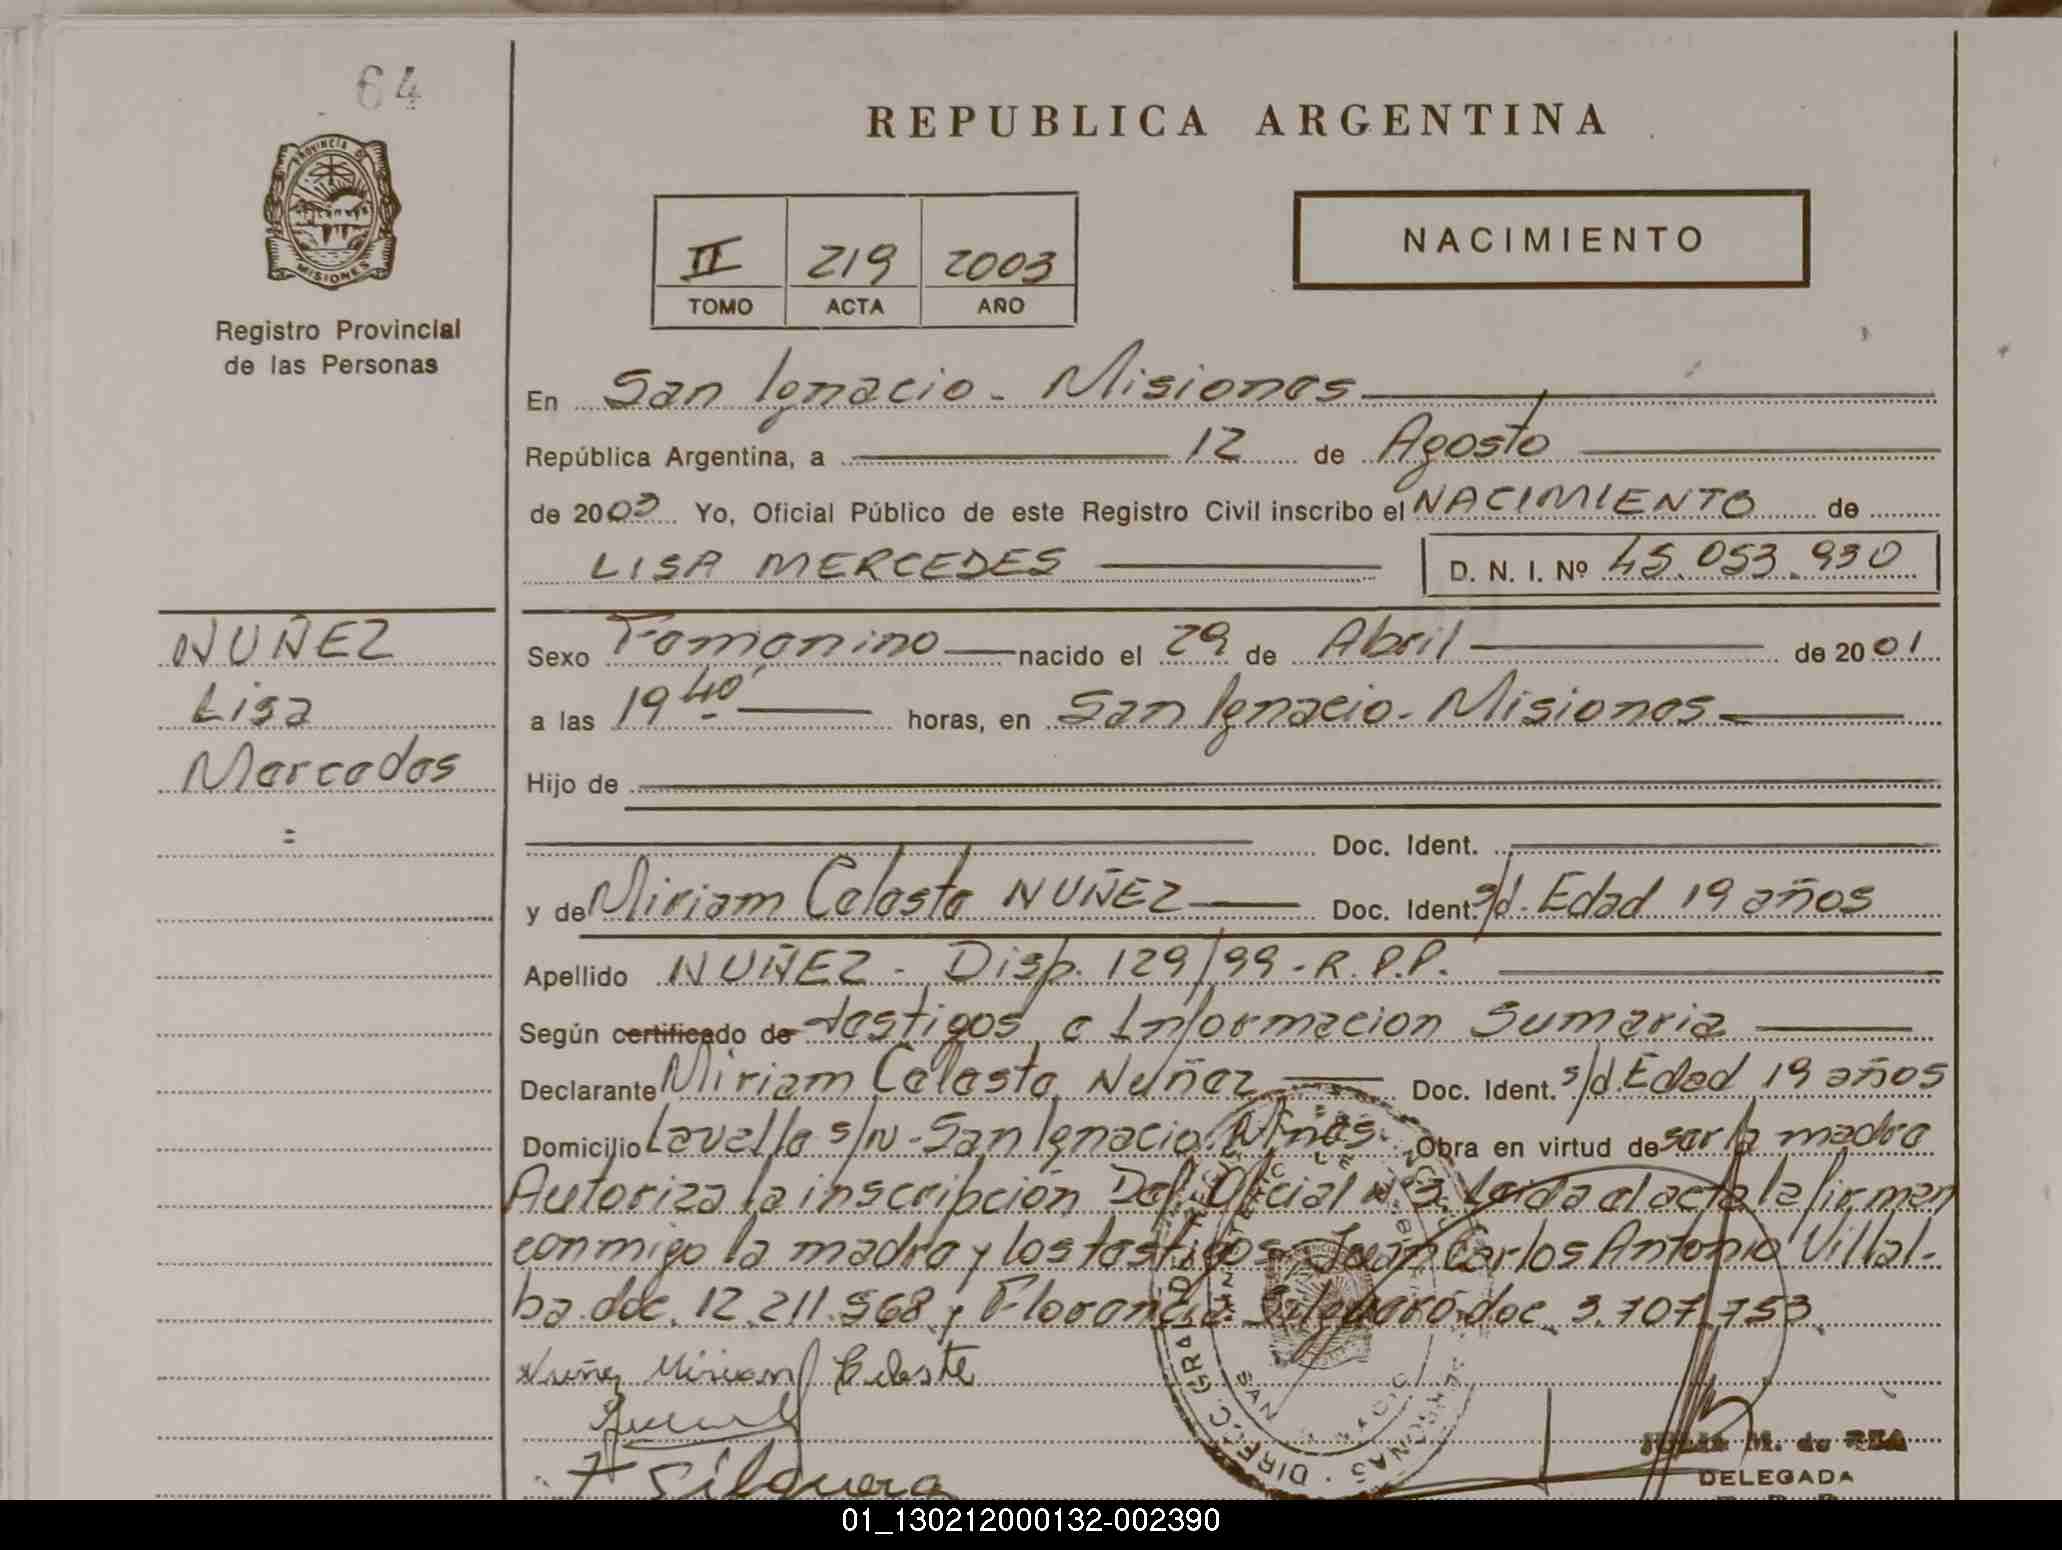 64
REPUBLICA ARGENTINA
PROVINCIA DE
MISIONES
Registro Provincial
de las Personas
II 219 2003
TOMO ACTA AÑO
NACIMIENTO
En San Ignacio - Misiones
República Argentina, a 12 de Agosto
de 2003 Yo, Oficial Público de este Registro Civil inscribo el NACIMIENTO de
LISA MERCEDES D. N. I. Nº 45.053.930
NUÑEZ
Lisa
Mercedes
=
Sexo Femenino nacido el 29 de Abril de 2001
a las 19 40' horas, en San Ignacio - Misiones
Hijo de
Doc. Ident.
y de Miriam Celeste NUÑEZ Doc. Ident. s/d. Edad 19 años
Apellido NUÑEZ - Disp. 129/99 - R.P.P.
Según certificado de testigos e Informacion Sumaria
Declarante Miriam Celeste Nuñez Doc. Ident. s/d. Edad 19 años
Domicilio Lavalle s/N - San Ignacio. Mnes. Obra en virtud de ser la madre
Autoriza la inscripción Del. Oficial Leida el acta la firman
conmigo la madre y los testigos Juan Carlos Antonio Villal-
ba doc. 12.211.568 y Florencia doc. 3.707.753
Nuñez Miriam Celeste
F Silguera
M. de REA
DELEGADA
01_130212000132-002390